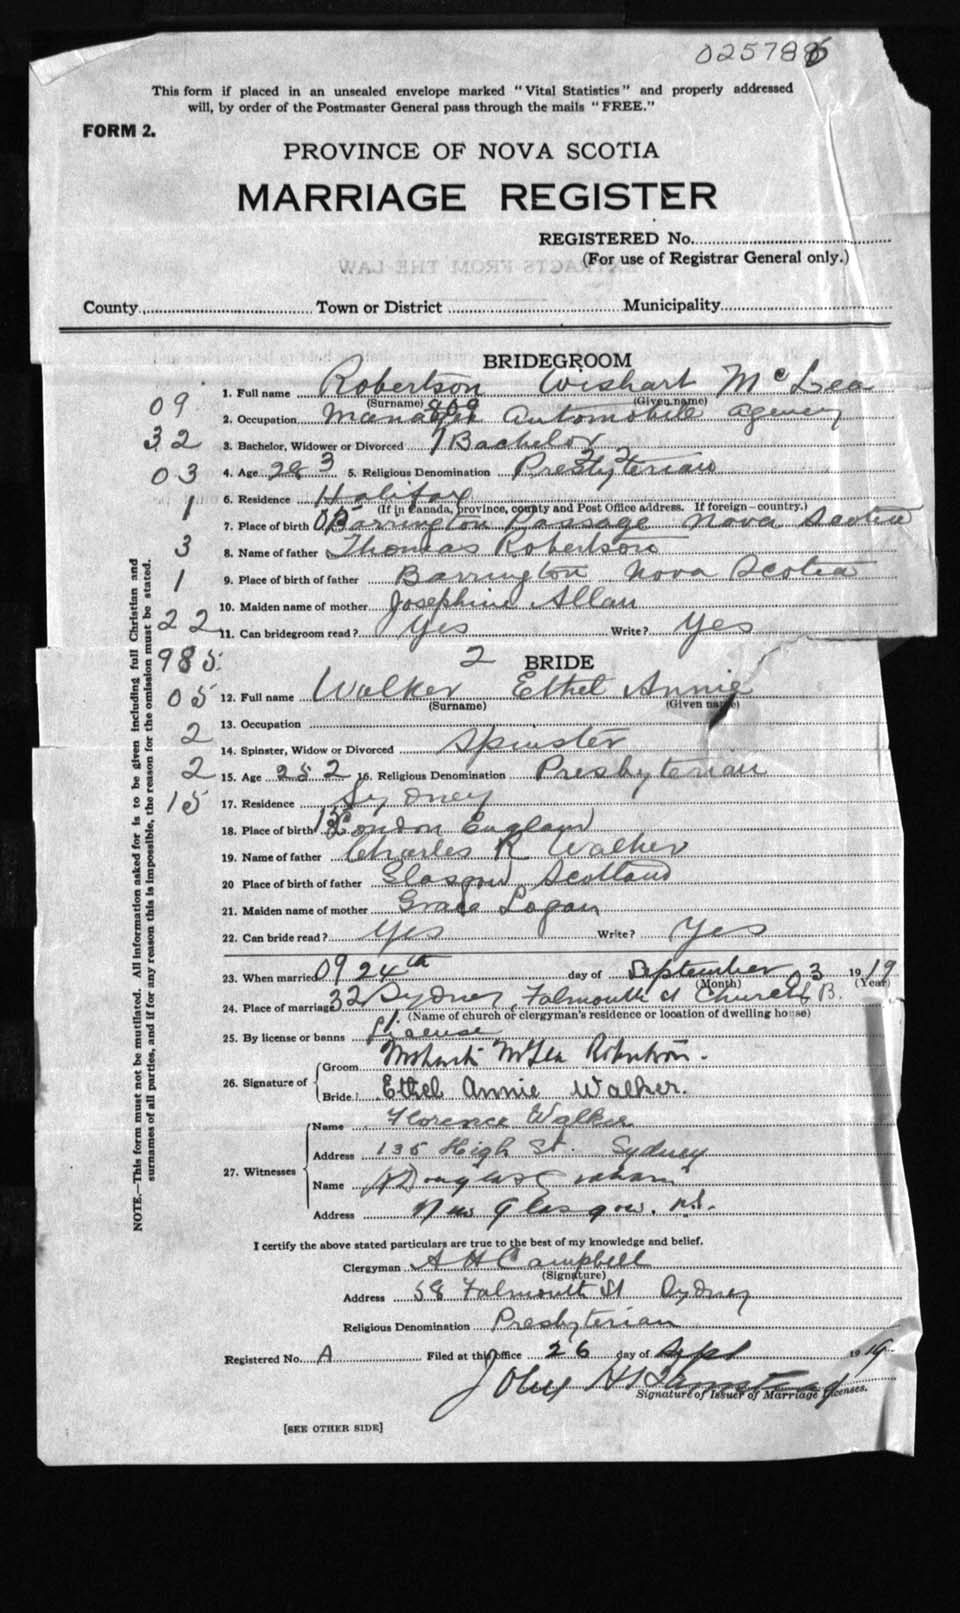 This form if placed in an unsealed envelope marked "Vital Statistics" and properly addressed
will, by order of the Postmaster General pass through the mails "FREE."
FORM 2.
PROVINCE OF NOVA SCOTIA
MARRIAGE REGISTER
REGISTERED No.
(For use of Registrar General only.)
County Town or District Municipality
BRIDEGROOM
1. Full name Robertson Wishart McLea
(Surname) (Given name)
09
2. Occupation Manager Automobile agency
32
3. Bachelor, Widower or Divorced Bachelor
03
4. Age 28 3 5. Religious Denomination Presbyterian
1
6. Residence Halifax
(If in Canada, province, county and Post Office address. If foreign—country.)
7. Place of birth Barrington Passage Nova Scotia
3
8. Name of father Thomas Robertson
1
9. Place of birth of father Barrington Nova Scotia
10. Maiden name of mother Josephine Allan
22
11. Can bridegroom read? Yes Write? Yes
985
2 BRIDE
05
12. Full name Walker Ethel Annie
(Surname) (Given name)
13. Occupation
2
14. Spinster, Widow or Divorced Spinster
2
15. Age 25 2 16. Religious Denomination Presbyterian
15
17. Residence Sydney
18. Place of birth London England
19. Name of father Charles R Walker
20 Place of birth of father Glasgow Scotland
21. Maiden name of mother Grace Logan
22. Can bride read? Yes Write? Yes
23. When married 09 24th day of September 03 1919
(Month) (Year)
24. Place of marriage 32 Sydney, Falmouth St Church
(Name of church or clergyman's residence or location of dwelling house)
25. By license or banns License
26. Signature of
Groom Wishart McLea Robertson.
Bride Ethel Annie Walker.
27. Witnesses
Name Florence Walker
Address 135 High St. Sydney
Name Douglas Graham
Address New Glasgow. N.S.
I certify the above stated particulars are true to the best of my knowledge and belief.
Clergyman A H Campbell
(Signature)
Address 58 Falmouth St Sydney
Religious Denomination Presbyterian
Registered No. A Filed at this office 26 day of Sept 1919
Signature of Issuer of Marriage Licenses.
[SEE OTHER SIDE]
NOTE.—This form must not be mutilated. All information asked for is to be given including full Christian and
surnames of all parties, and if for any reason this is impossible, the reason for the omission must be stated.